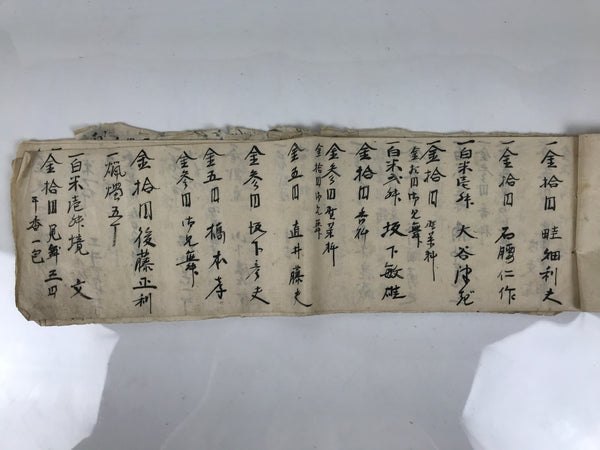 一金拾円 畦細利夫
一金拾円 石腰仁作
一白米壱升 大谷
一金拾円 野菜料
金弐円御見舞
一白米弐升 坂下敏雄
金拾円香料
金参円野菜料
金拾円御見舞
金五円 直井藤夫
金参円 坂下彦丈
金五円 橋本孝
金参円御見舞
金拾円後藤正利
一蝋燭五丁
一白米壱升 境 文
一金拾円 見舞五円
平香一包